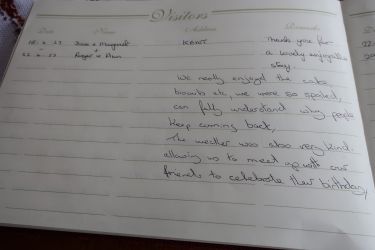 Visitors
Date Name Address Remarks
18. 6. 23 Dave & Margaret KENT Thank you for
22. 6. 23 Roger & Ann a lovely enjoyable
stay.
We really enjoyed the cats,
etc, we were so spoiled,
can fully understand why people
Keep coming back,
The weather was also very kind.
allowing us to meet up with our
friends to celebrate their birthday,